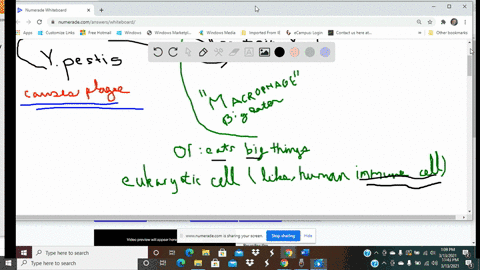 Numerade Whiteboard
numerade.com/answers/whiteboard/
Apps
Customize Links
Free Hotmail
Windows Marketplace
Windows Media
Windows
Imported From IE
eCampus Login
Contact us here at...
Other bookmarks
Y. pestis
causes plague
"MACROPHAGE"
Big eater
Or: eats big things
eukaryotic cell (like human immune cell)
www.numerade.com is sharing your screen.
Stop sharing
Hide
Video preview will appear here
Type here to search
1:09 PM
3/13/2021
Type here to search
3/13/2021